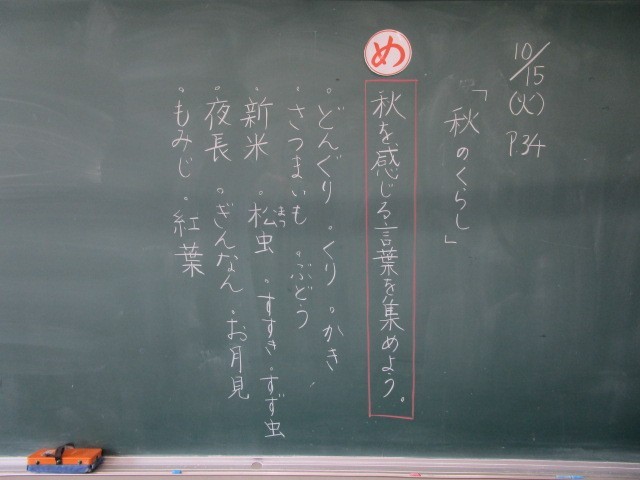 10/15
(火)
P34
「秋のくらし」
め
秋を感じる言葉を集めよう。
。どんぐり 。くり 。かき
。さつまいも 。ぶどう
。新米 。松虫 。すすき 。すず虫
まつ
。夜長 。ぎんなん 。お月見
。もみじ 。紅葉